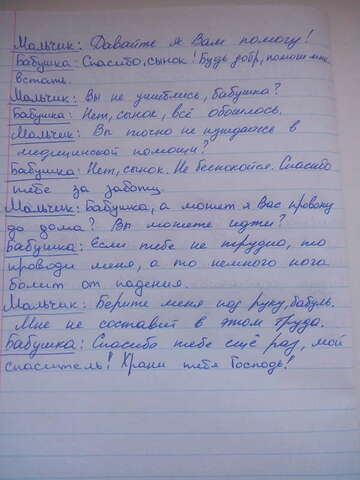 Мальчик: Давайте я Вам помогу!
Бабушка: Спасибо, сынок! Будь добр, помоги мне
встать.
Мальчик: Вы не ушиблись, бабушка?
Бабушка: Нет, сынок, всё обошлось.
Мальчик: Вы точно не нуждаетесь в
медицинской помощи?
Бабушка: Нет, сынок. Не беспокойся. Спасибо
тебе за заботу.
Мальчик: Бабушка, а может я Вас провожу
до дома? Вы можете идти?
Бабушка: Если тебе не трудно, то
проводи меня, а то немного нога
болит от падения.
Мальчик: Берите меня под руку, бабуль.
Мне не составит в этом труда.
Бабушка: Спасибо тебе ещё раз, мой
спаситель! Храни тебя Господь!